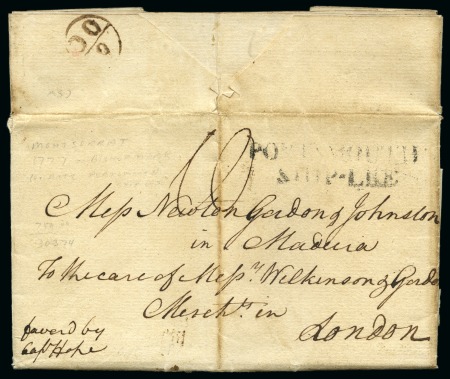 OC
9
MONTSERRAT
1777
PORTSMOUTH
SHIP-LRE
Mess Newton Gordon & Johnston
in Madeira
To the care of Mess.rs Wilkinson & Gordon
Merch.ts in
London
favord by
Cap.t Hope